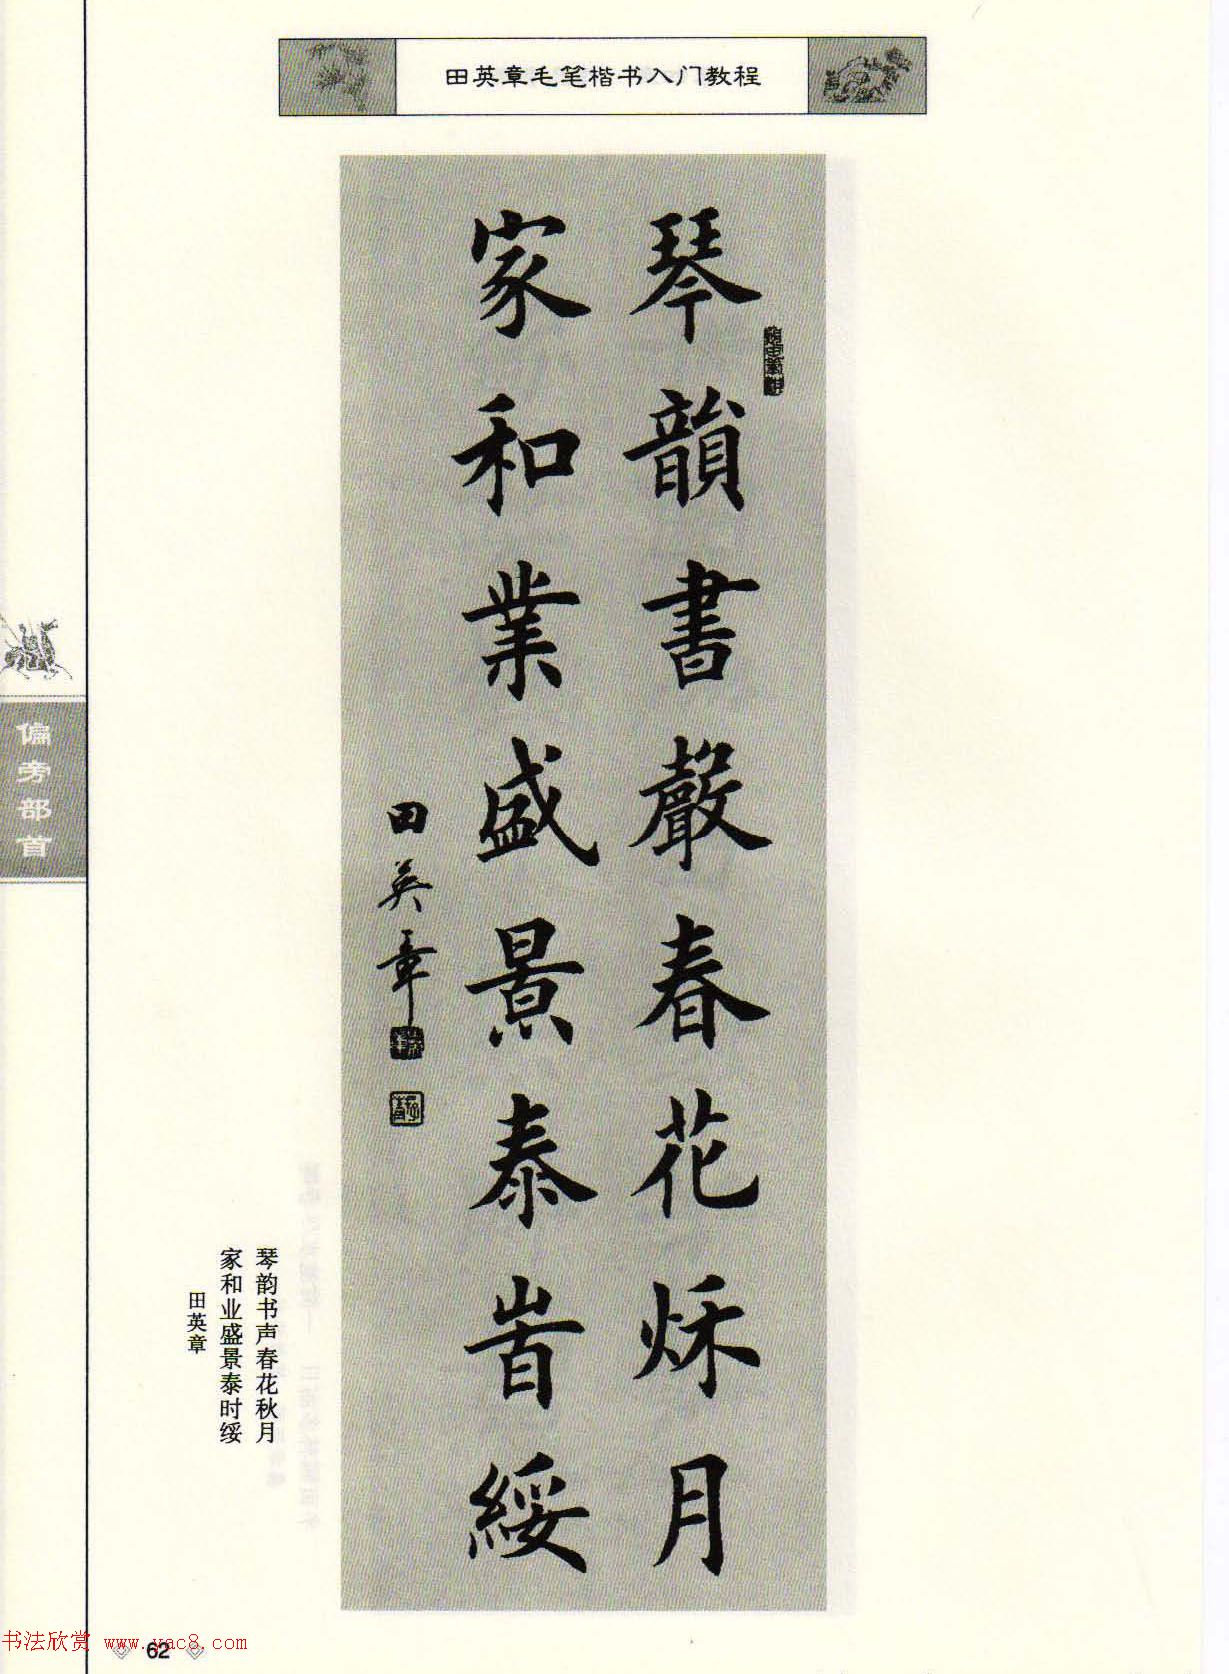 田英章毛笔楷书入门教程
琴韻書聲春花秌月
家和業盛景泰旹綏
田英章
偏旁部首
琴韵书声春花秋月
家和业盛景泰时绥
田英章
书法欣赏 www.yac8.com
62